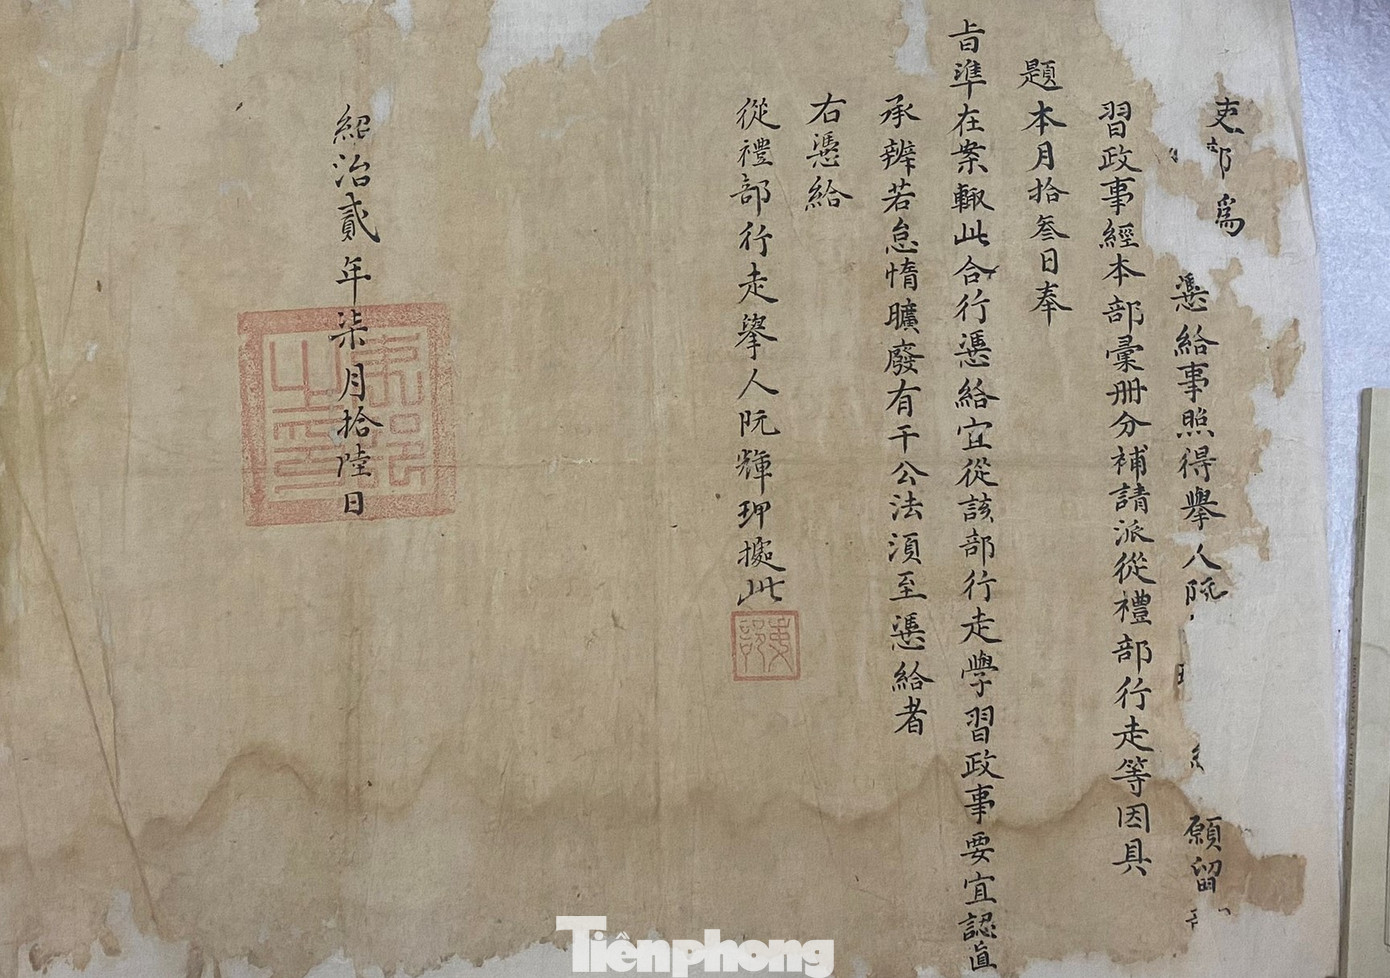 吏部為
憑給事照得舉人阮願留
習政事經本部彙冊分補請派從禮部行走等因具
題本月拾叁日奉
旨準在案輙此合行憑給宜從該部行走學習政事要宜認真
承辦若怠惰曠廢有干公法湏至憑給者
右憑給
從禮部行走舉人阮輝玾據此
吏部
紹治貳年柒月拾陸日
吏部之印
Tiềnphong